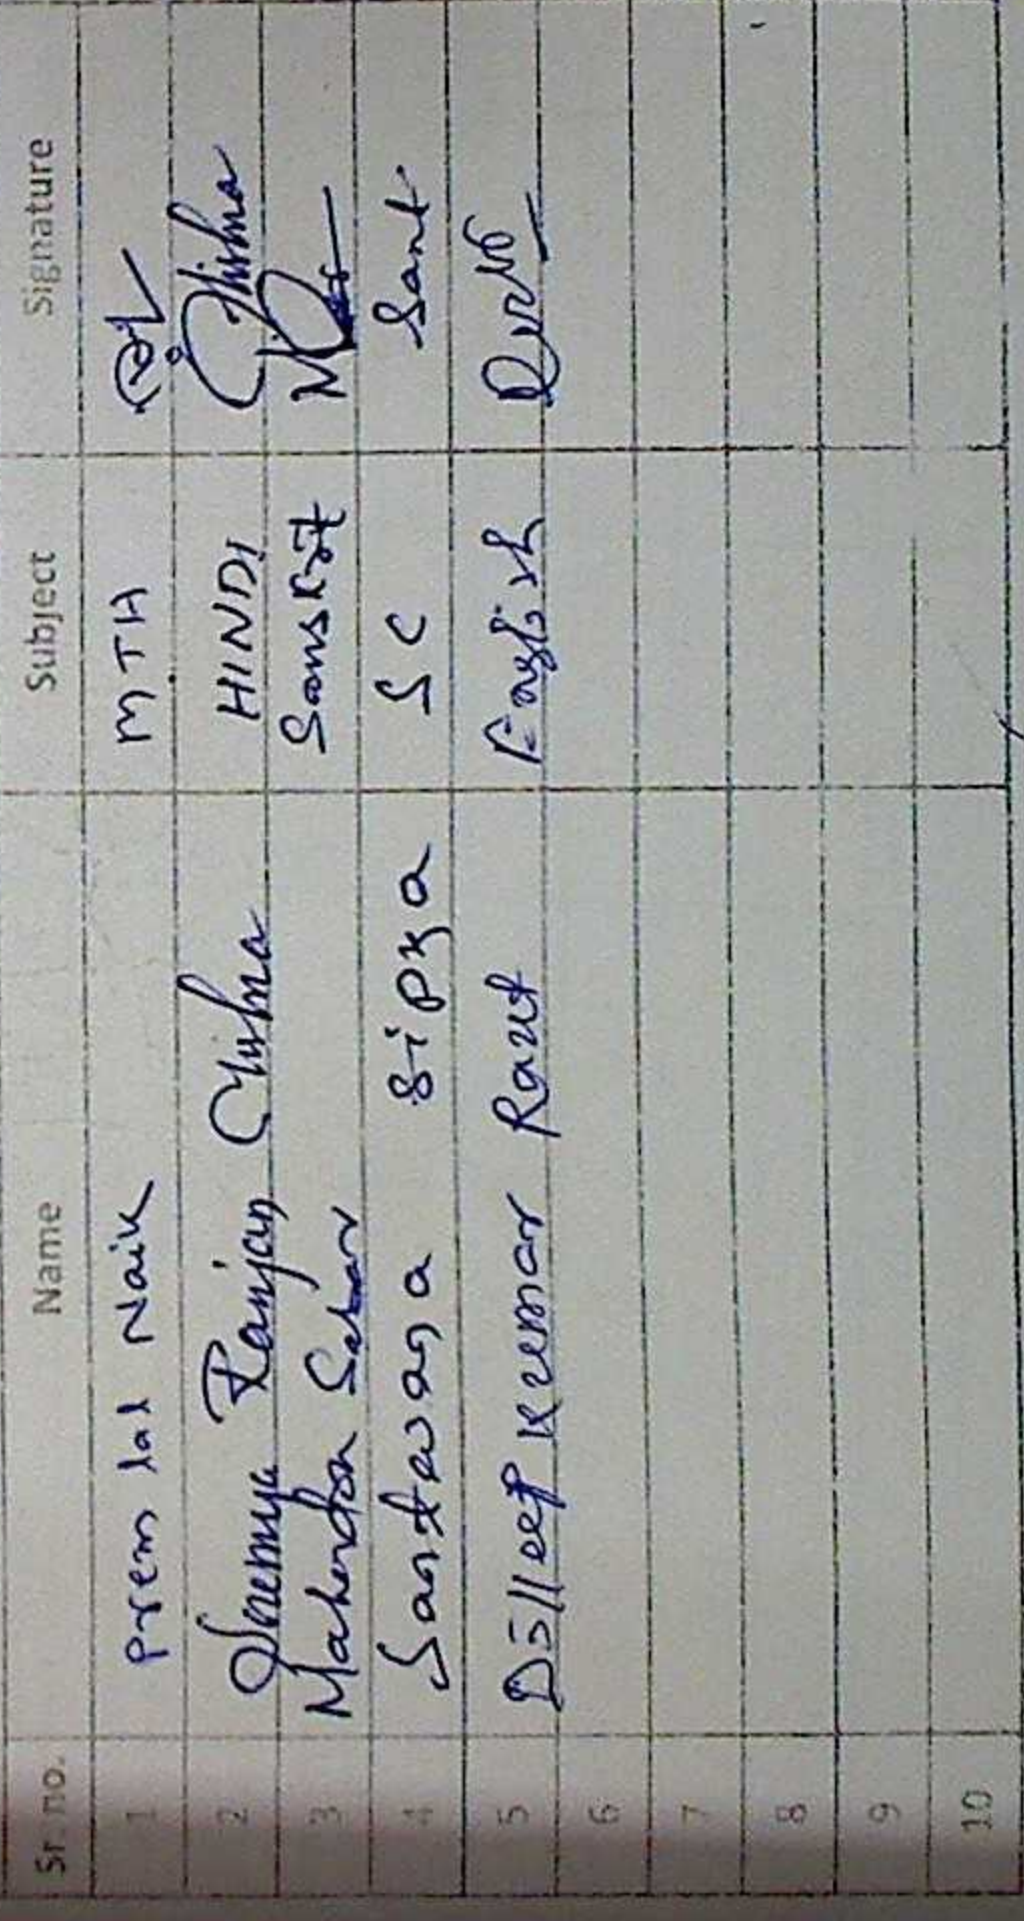 Sr. no. Name Subject Signature
1 Prem lal Naik MTH
2 Ranjan HINDI
3 Mahendra Sahar Sanskrit
4 Santwana sipka SC Sant
5 Dilleep Kumar Raut English
6
7
8
9
10